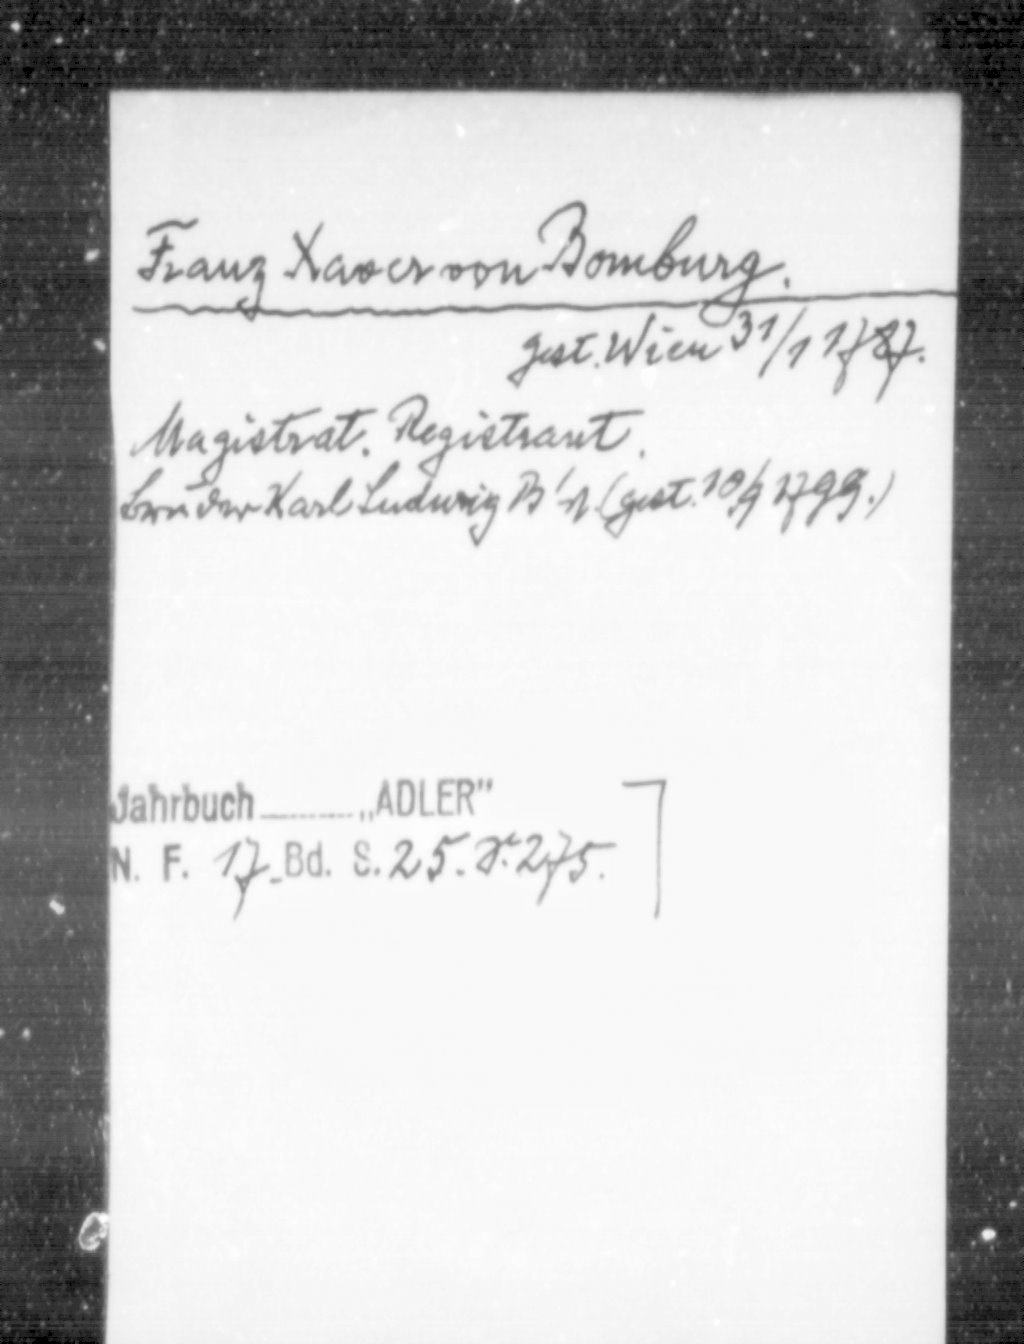 Franz Xaver von Bomburg.
gest. Wien 31/1 1787.
Magistrat. Registrant.
bruder Karl Ludwig B's. (gest. 10/9 1799.)
Jahrbuch ........ „ADLER"
N. F. 17. Bd. S. 25. 275.